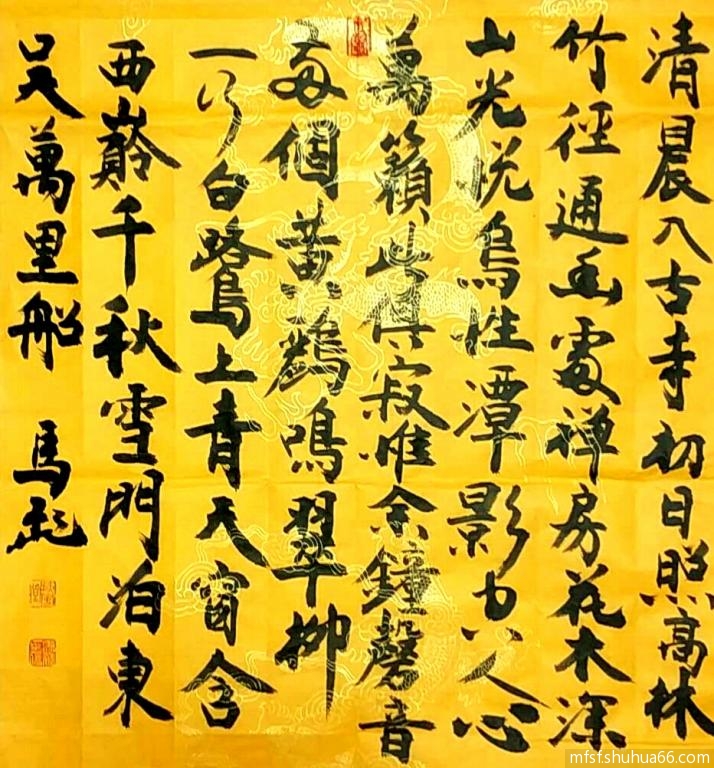 清晨入古寺初日照高林
竹徑通幽處禅房花木深
山光悦鳥性潭影空人心
萬籟此俱寂惟余鐘磬音
兩個黃鸝鳴翠柳
一行白鷺上青天窗含
西嶺千秋雪門泊東
吴萬里船 馬
mfsf.shuhua66.com